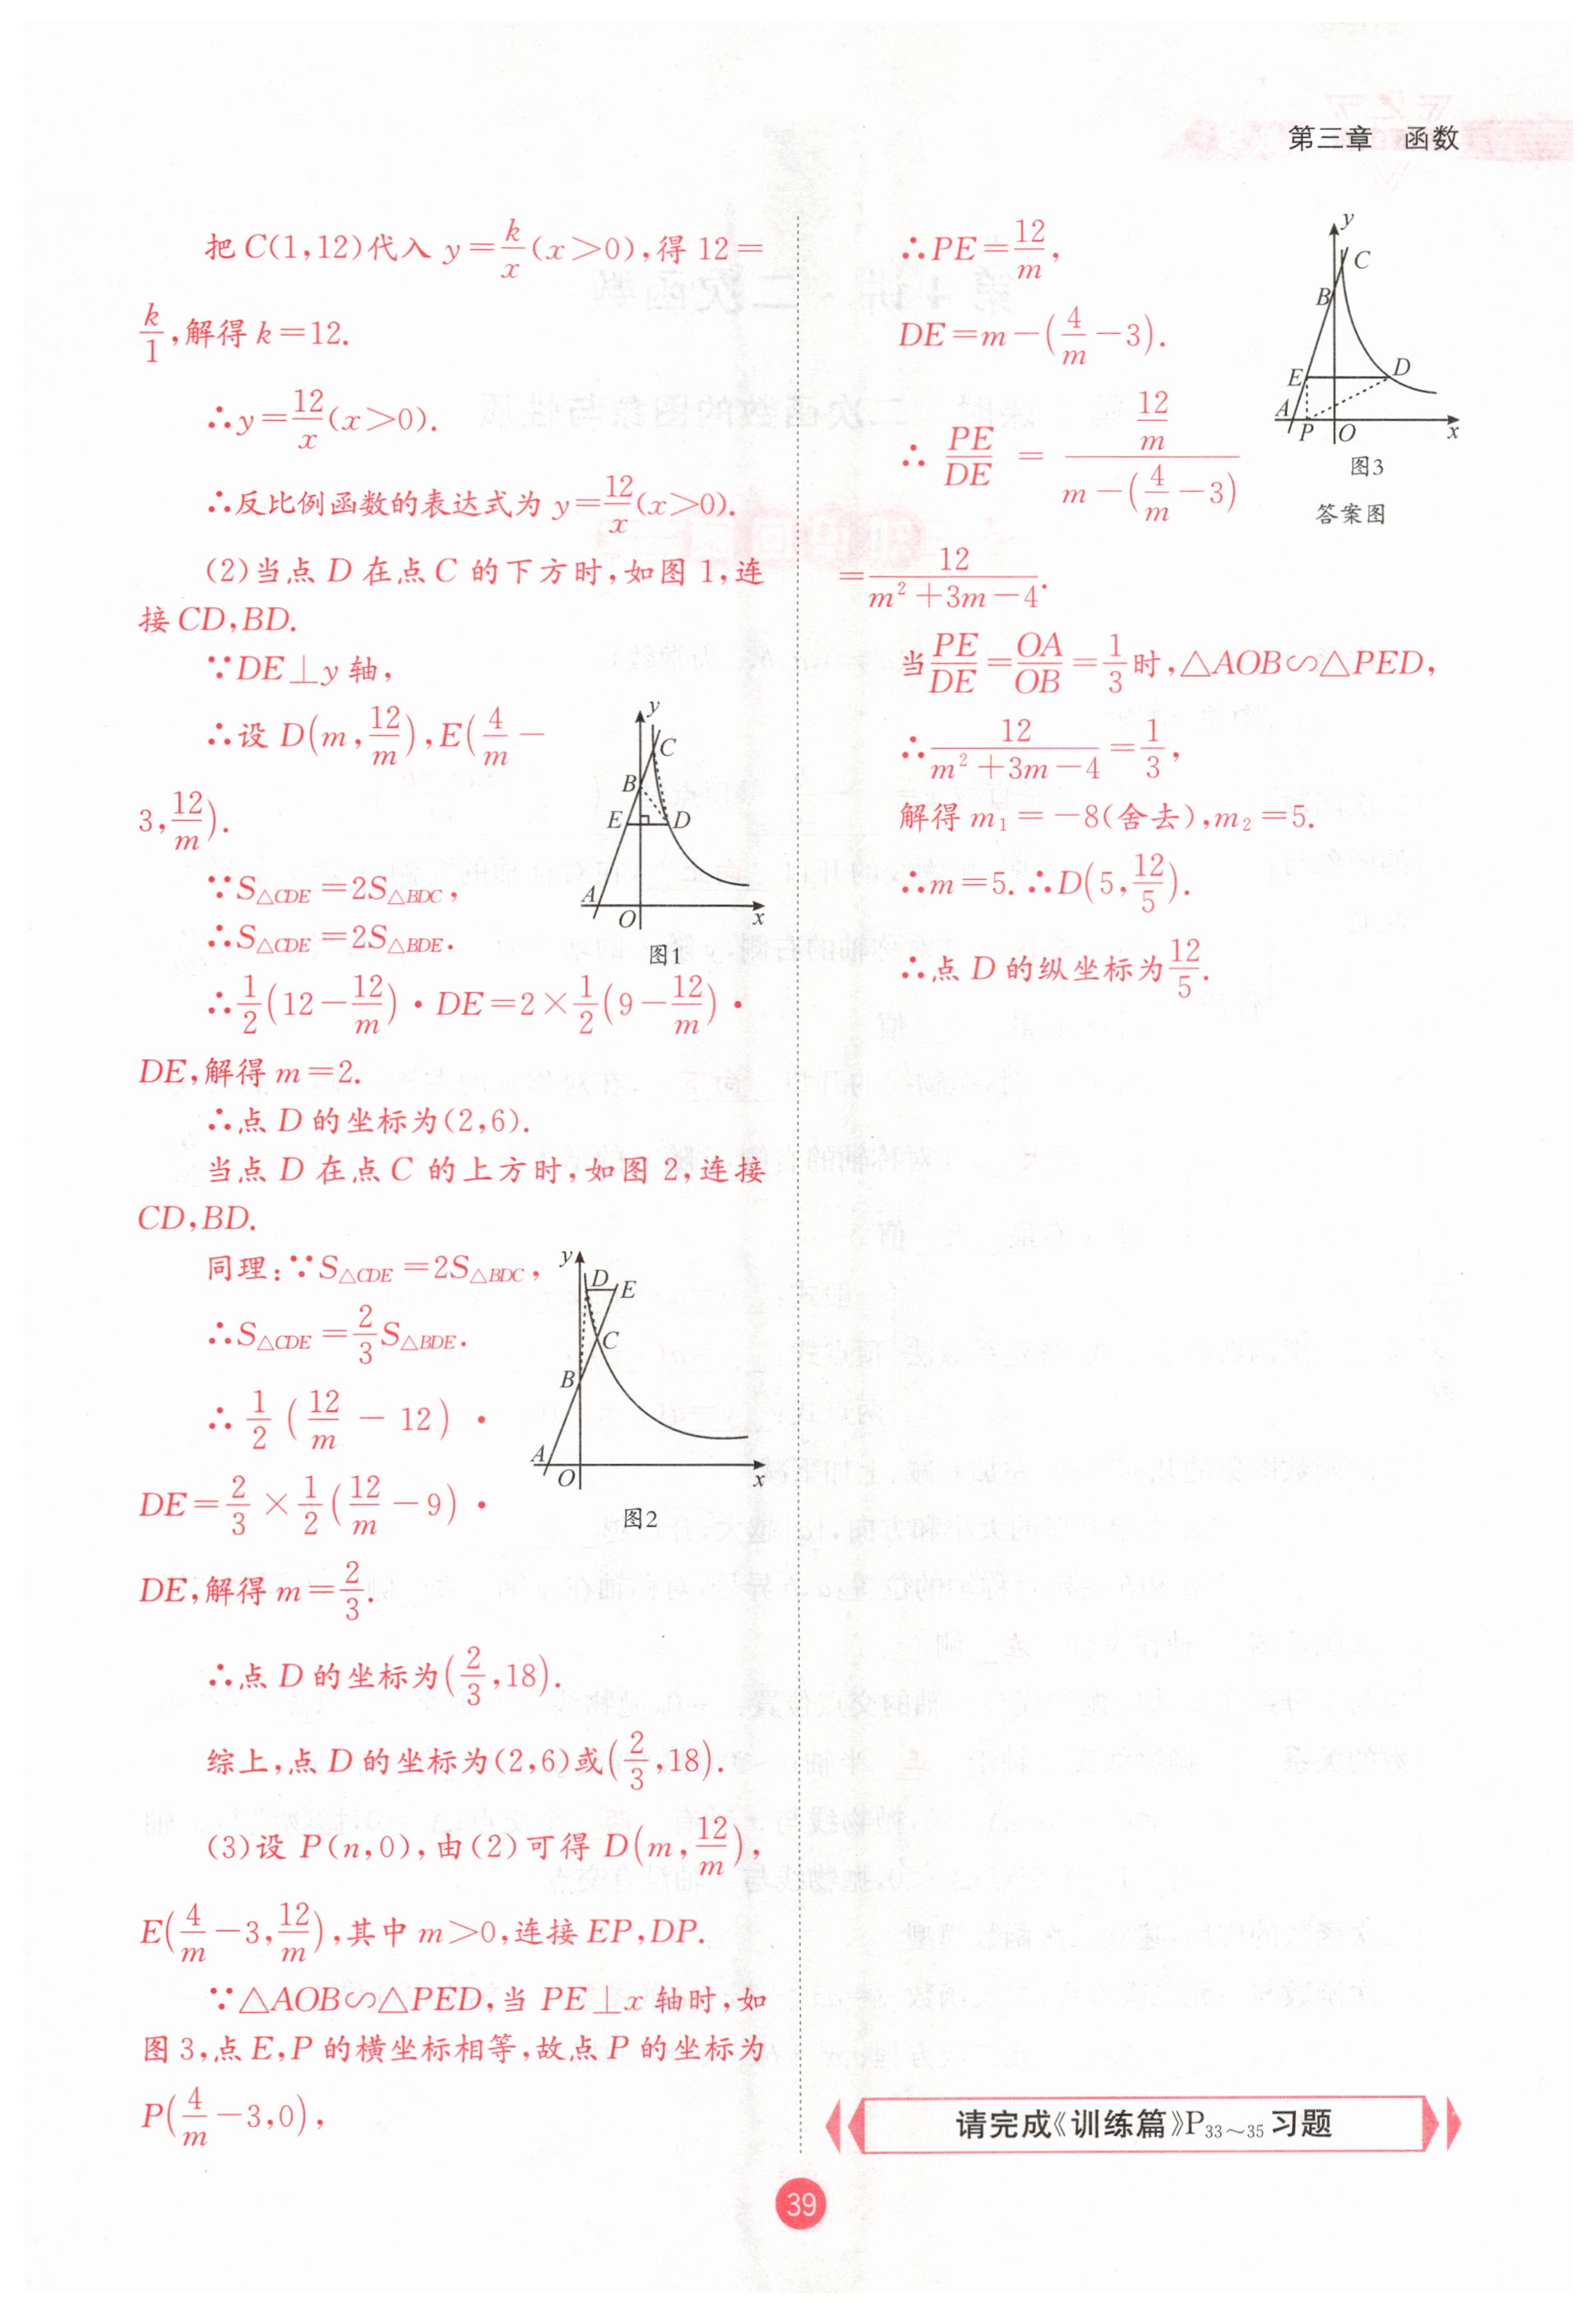 第三章 函数
把C(1,12)代入 y=k/x(x>0),得 12=
k/1,解得 k=12.
∴y=12/x(x>0).
∴反比例函数的表达式为 y=12/x(x>0).
(2)当点 D 在点 C 的下方时,如图 1,连
接 CD,BD.
∵DE⊥y 轴,
∴设 D(m,12/m),E(4/m-
3,12/m).
∵S△CDE=2S△BDC,
∴S△CDE=2S△BDE.
y
C
B
E
D
A
O
x
图1
∴1/2(12-12/m)·DE=2×1/2(9-12/m)·
DE,解得 m=2.
∴点 D 的坐标为(2,6).
当点 D 在点 C 的上方时,如图 2,连接
CD,BD.
同理:∵S△CDE=2S△BDC,
∴S△CDE=2/3S△BDE.
∴1/2(12/m-12)·
DE=2/3×1/2(12/m-9)·
DE,解得 m=2/3.
y
D
E
C
B
A
O
x
图2
∴点 D 的坐标为(2/3,18).
综上,点 D 的坐标为(2,6)或(2/3,18).
(3)设 P(n,0),由(2)可得 D(m,12/m),
E(4/m-3,12/m),其中 m>0,连接 EP,DP.
∵△AOB∽△PED,当 PE⊥x 轴时,如
图 3,点 E,P 的横坐标相等,故点 P 的坐标为
P(4/m-3,0),
∴PE=12/m,
DE=m-(4/m-3).
∴PE/DE=(12/m)/(m-(4/m-3))
=12/(m²+3m-4).
y
C
B
E
D
A
P
O
x
图3
答案图
当PE/DE=OA/OB=1/3时,△AOB∽△PED,
∴12/(m²+3m-4)=1/3,
解得 m₁=-8(舍去),m₂=5.
∴m=5.∴D(5,12/5).
∴点 D 的纵坐标为12/5.
请完成《训练篇》P33~35习题
39